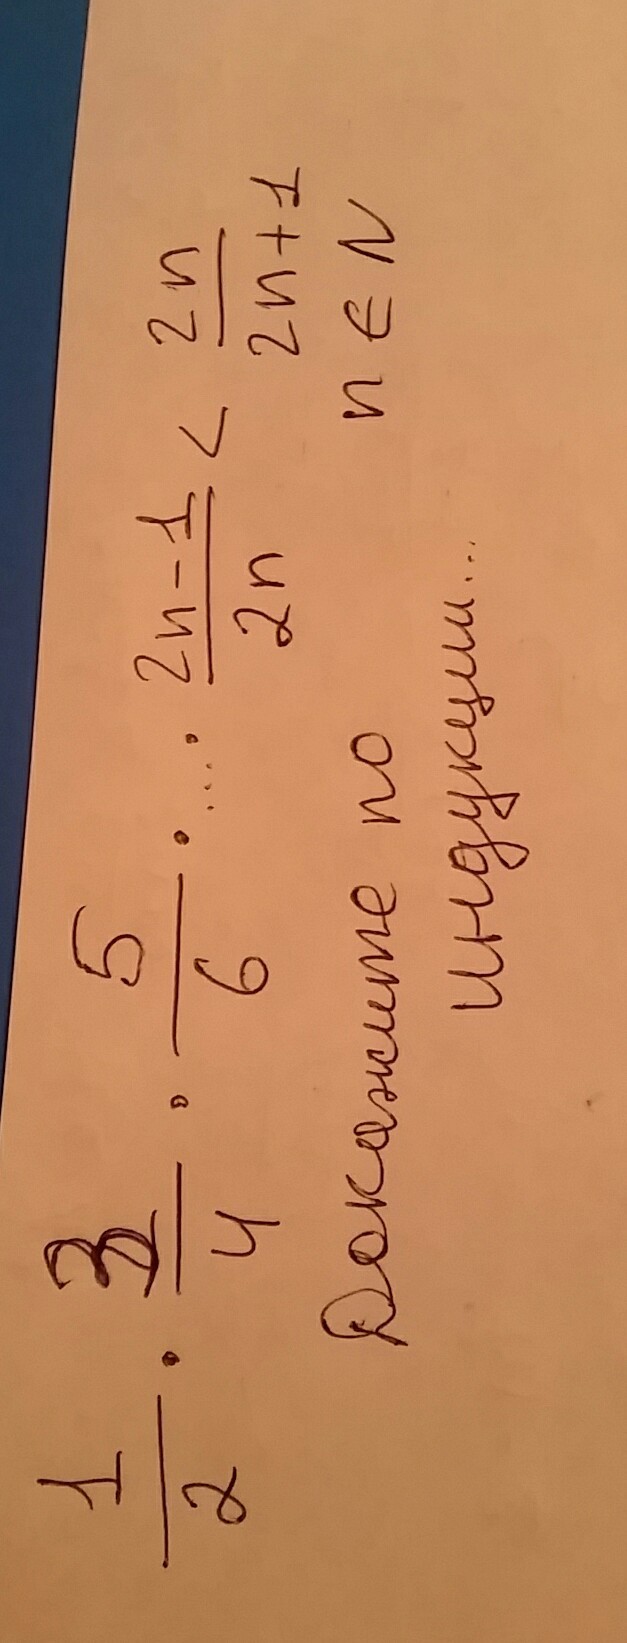 1/2 · 3/4 · 5/6 · ... · (2n-1)/2n < 2n/(2n+1)
Докажите по n ∈ N
индукции...